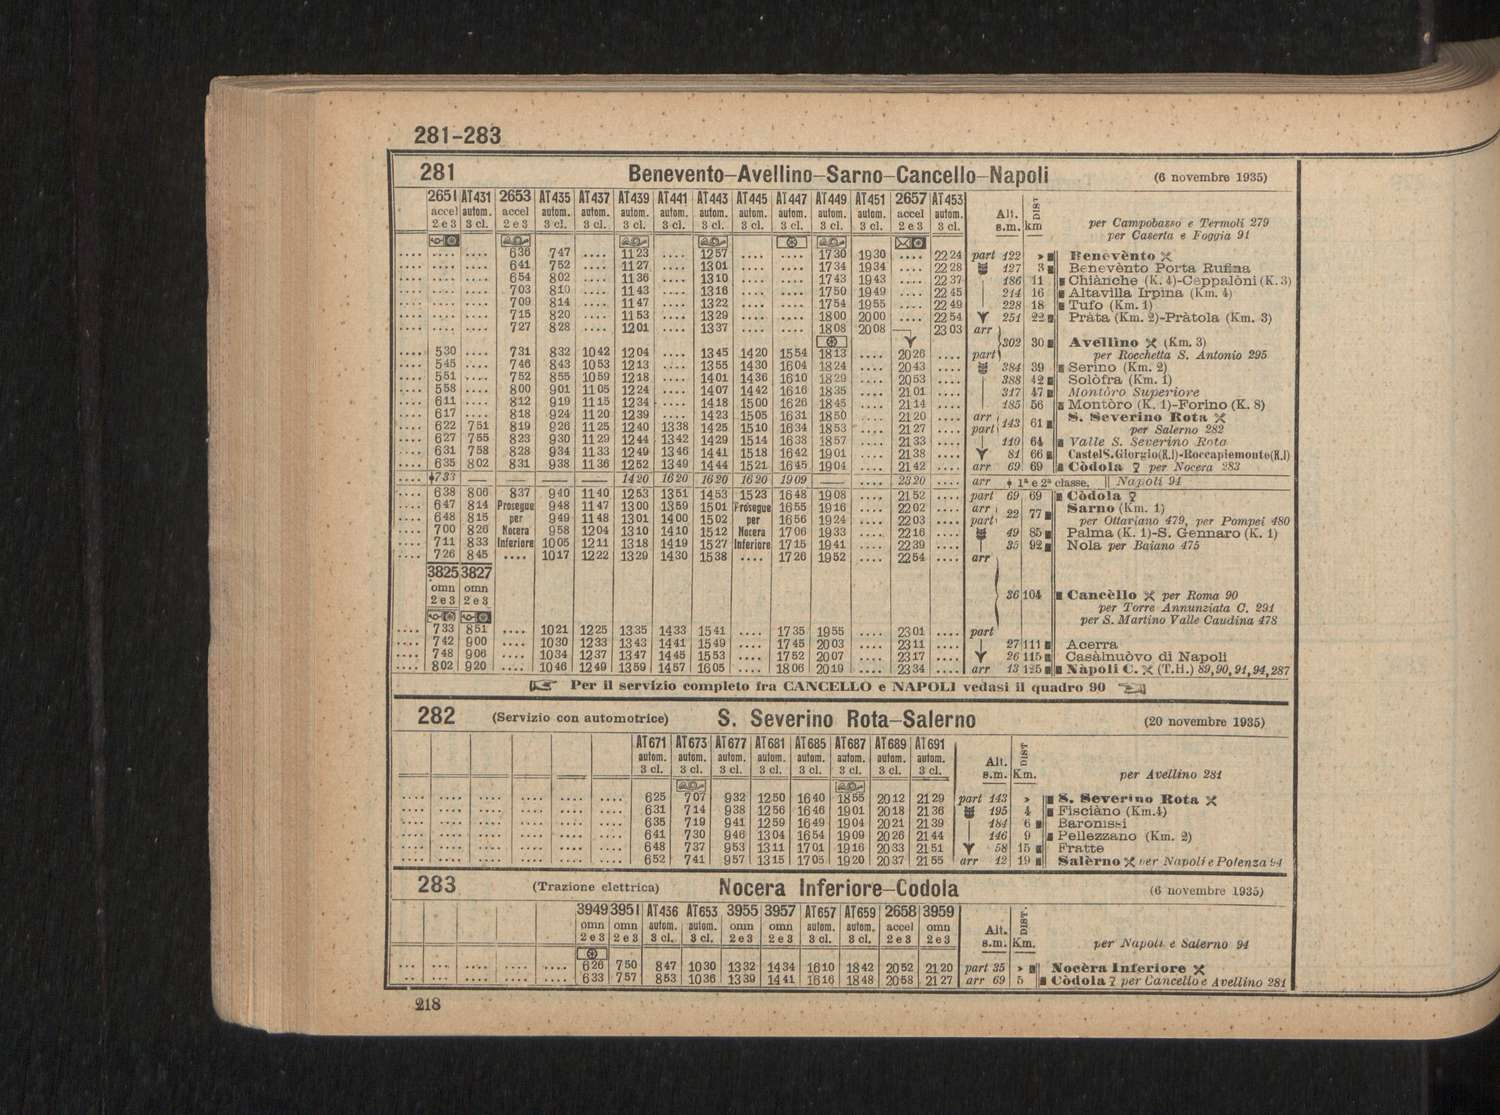 281-283
281 Benevento–Avellino–Sarno–Cancello–Napoli (6 novembre 1935)
2651 AT431 2653 AT435 AT437 AT439 AT441 AT443 AT445 AT447 AT449 AT451 2657 AT453
accel autom. accel autom. autom. autom. autom. autom. autom. autom. autom. autom. accel autom. Alt. DIST
2 e 3 3 cl. 2 e 3 3 cl. 3 cl. 3 cl. 3 cl. 3 cl. 3 cl. 3 cl. 3 cl. 3 cl. 2 e 3 3 cl. s.m. km per Campobasso e Termoli 279
per Caserta e Foggia 91
.... .... .... 636 747 .... 1123 .... 1257 .... .... 1730 1930 .... 2224 part 122 » Benevènto
.... .... .... 641 752 .... 1127 .... 1301 .... .... 1734 1934 .... 2228 127 3 Benevènto Porta Rufina
.... .... .... 654 802 .... 1136 .... 1310 .... .... 1743 1943 .... 2237 186 11 Chiànche (K. 4)-Ceppalòni (K. 3)
.... .... .... 703 810 .... 1143 .... 1316 .... .... 1750 1949 .... 2245 214 16 Altavilla Irpina (Km. 4)
.... .... .... 709 814 .... 1147 .... 1322 .... .... 1754 1955 .... 2249 228 18 Tufo (Km. 1)
.... .... .... 715 820 .... 1153 .... 1329 .... .... 1800 2000 .... 2254 251 22 Pràta (Km. 2)-Pràtola (Km. 3)
.... .... .... 727 828 .... 1201 .... 1337 .... .... 1808 2008 2303 arr
302 30 Avellino (Km. 3)
.... 530 .... 731 832 1042 1204 .... 1345 1420 1554 1813 .... 2026 .... part per Rocchetta S. Antonio 295
.... 545 .... 746 843 1053 1213 .... 1355 1430 1604 1824 .... 2043 .... 384 39 Serino (Km. 2)
.... 551 .... 752 855 1059 1218 .... 1401 1436 1610 1829 .... 2053 .... 388 42 Solòfra (Km. 1)
.... 558 .... 800 901 1105 1224 .... 1407 1442 1616 1835 .... 2101 .... 317 47 Montòro Superiore
.... 611 .... 812 919 1115 1234 .... 1418 1500 1626 1845 .... 2114 .... 185 56 Montòro (K. 1)-Forino (K. 8)
.... 617 .... 818 924 1120 1239 .... 1423 1505 1631 1850 .... 2120 .... arr 143 61 S. Severino Rota
.... 622 751 819 926 1125 1240 1338 1425 1510 1634 1853 .... 2127 .... part per Salerno 282
.... 627 755 823 930 1129 1244 1342 1429 1514 1638 1857 .... 2133 .... 110 64 Valle S. Severino Rota
.... 631 758 828 934 1133 1249 1346 1441 1518 1642 1901 .... 2138 .... 81 66 Castel S. Giorgio (K.1)-Roccapiemonte (K.1)
.... 635 802 831 938 1136 1252 1349 1444 1521 1645 1904 .... 2142 .... arr 69 69 Còdola per Nocera 283
.... 733 — — — — 1420 1620 1620 1620 1909 — .... 2320 .... arr 1ª e 2ª classe, Napoli 94
.... 638 806 837 940 1140 1253 1351 1453 1523 1648 1908 .... 2152 .... part 69 69 Còdola
.... 647 814 Prosegue 948 1147 1300 1359 1501 Prosegue 1655 1916 .... 2202 .... arr 22 77 Sarno (Km. 1)
.... 648 815 per 949 1148 1301 1400 1502 per 1656 1924 .... 2203 .... part per Ottaviano 479, per Pompei 480
.... 700 826 Nocera 958 1204 1310 1410 1512 Nocera 1706 1933 .... 2216 .... 49 85 Palma (K. 1)-S. Gennaro (K. 1)
.... 711 833 Inferiore 1005 1211 1318 1419 1527 Inferiore 1715 1941 .... 2239 .... 35 92 Nola per Baiano 475
.... 726 845 .... 1017 1222 1329 1430 1538 .... 1726 1952 .... 2254 .... arr
3825 3827
omn omn
2 e 3 2 e 3 36 104 Cancèllo per Roma 90
per Torre Annunziata C. 291
per S. Martino Valle Caudina 478
.... 733 851 .... 1021 1225 1335 1433 1541 .... 1735 1955 .... 2301 .... part
.... 742 900 .... 1030 1233 1343 1441 1549 .... 1745 2003 .... 2311 .... 27 111 Acerra
.... 748 906 .... 1034 1237 1347 1445 1553 .... 1752 2007 .... 2317 .... 26 115 Casalnuòvo di Napoli
.... 802 920 .... 1046 1249 1359 1457 1605 .... 1806 2019 .... 2334 .... arr 13 125 Nàpoli C. (T.H.) 89,90,91,94,287
Per il servizio completo fra CANCELLO e NAPOLI vedasi il quadro 90
282 (Servizio con automotrice) S. Severino Rota–Salerno (20 novembre 1935)
AT671 AT673 AT677 AT681 AT685 AT687 AT689 AT691
autom. autom. autom. autom. autom. autom. autom. autom. Alt. DIST
3 cl. 3 cl. 3 cl. 3 cl. 3 cl. 3 cl. 3 cl. 3 cl. s.m. Km. per Avellino 281
.... .... .... .... .... .... 625 707 932 1250 1640 1855 2012 2129 part 143 » S. Severino Rota
.... .... .... .... .... .... 631 714 938 1256 1646 1901 2018 2136 195 4 Fisciàno (Km.4)
.... .... .... .... .... .... 635 719 941 1259 1649 1904 2021 2139 184 6 Baronissi
.... .... .... .... .... .... 641 730 946 1304 1654 1909 2026 2144 146 9 Pellezzano (Km. 2)
.... .... .... .... .... .... 648 737 953 1311 1701 1916 2033 2151 58 15 Fratte
.... .... .... .... .... .... 652 741 957 1315 1705 1920 2037 2155 arr 12 19 Salèrno per Napoli e Potenza 94
283 (Trazione elettrica) Nocera Inferiore–Codola (6 novembre 1935)
3949 3951 AT436 AT653 3955 3957 AT657 AT659 2658 3959
omn omn autom. autom. omn omn autom. autom. accel omn Alt. DIST.
2 e 3 2 e 3 3 cl. 3 cl. 2 e 3 2 e 3 3 cl. 3 cl. 2 e 3 2 e 3 s.m. Km. per Napoli e Salerno 94
.... .... .... .... .... 626 750 847 1030 1332 1434 1610 1842 2052 2120 part 35 » Nocèra Inferiore
.... .... .... .... .... 633 757 853 1036 1339 1441 1616 1848 2058 2127 arr 69 5 Còdola per Cancello e Avellino 281
218